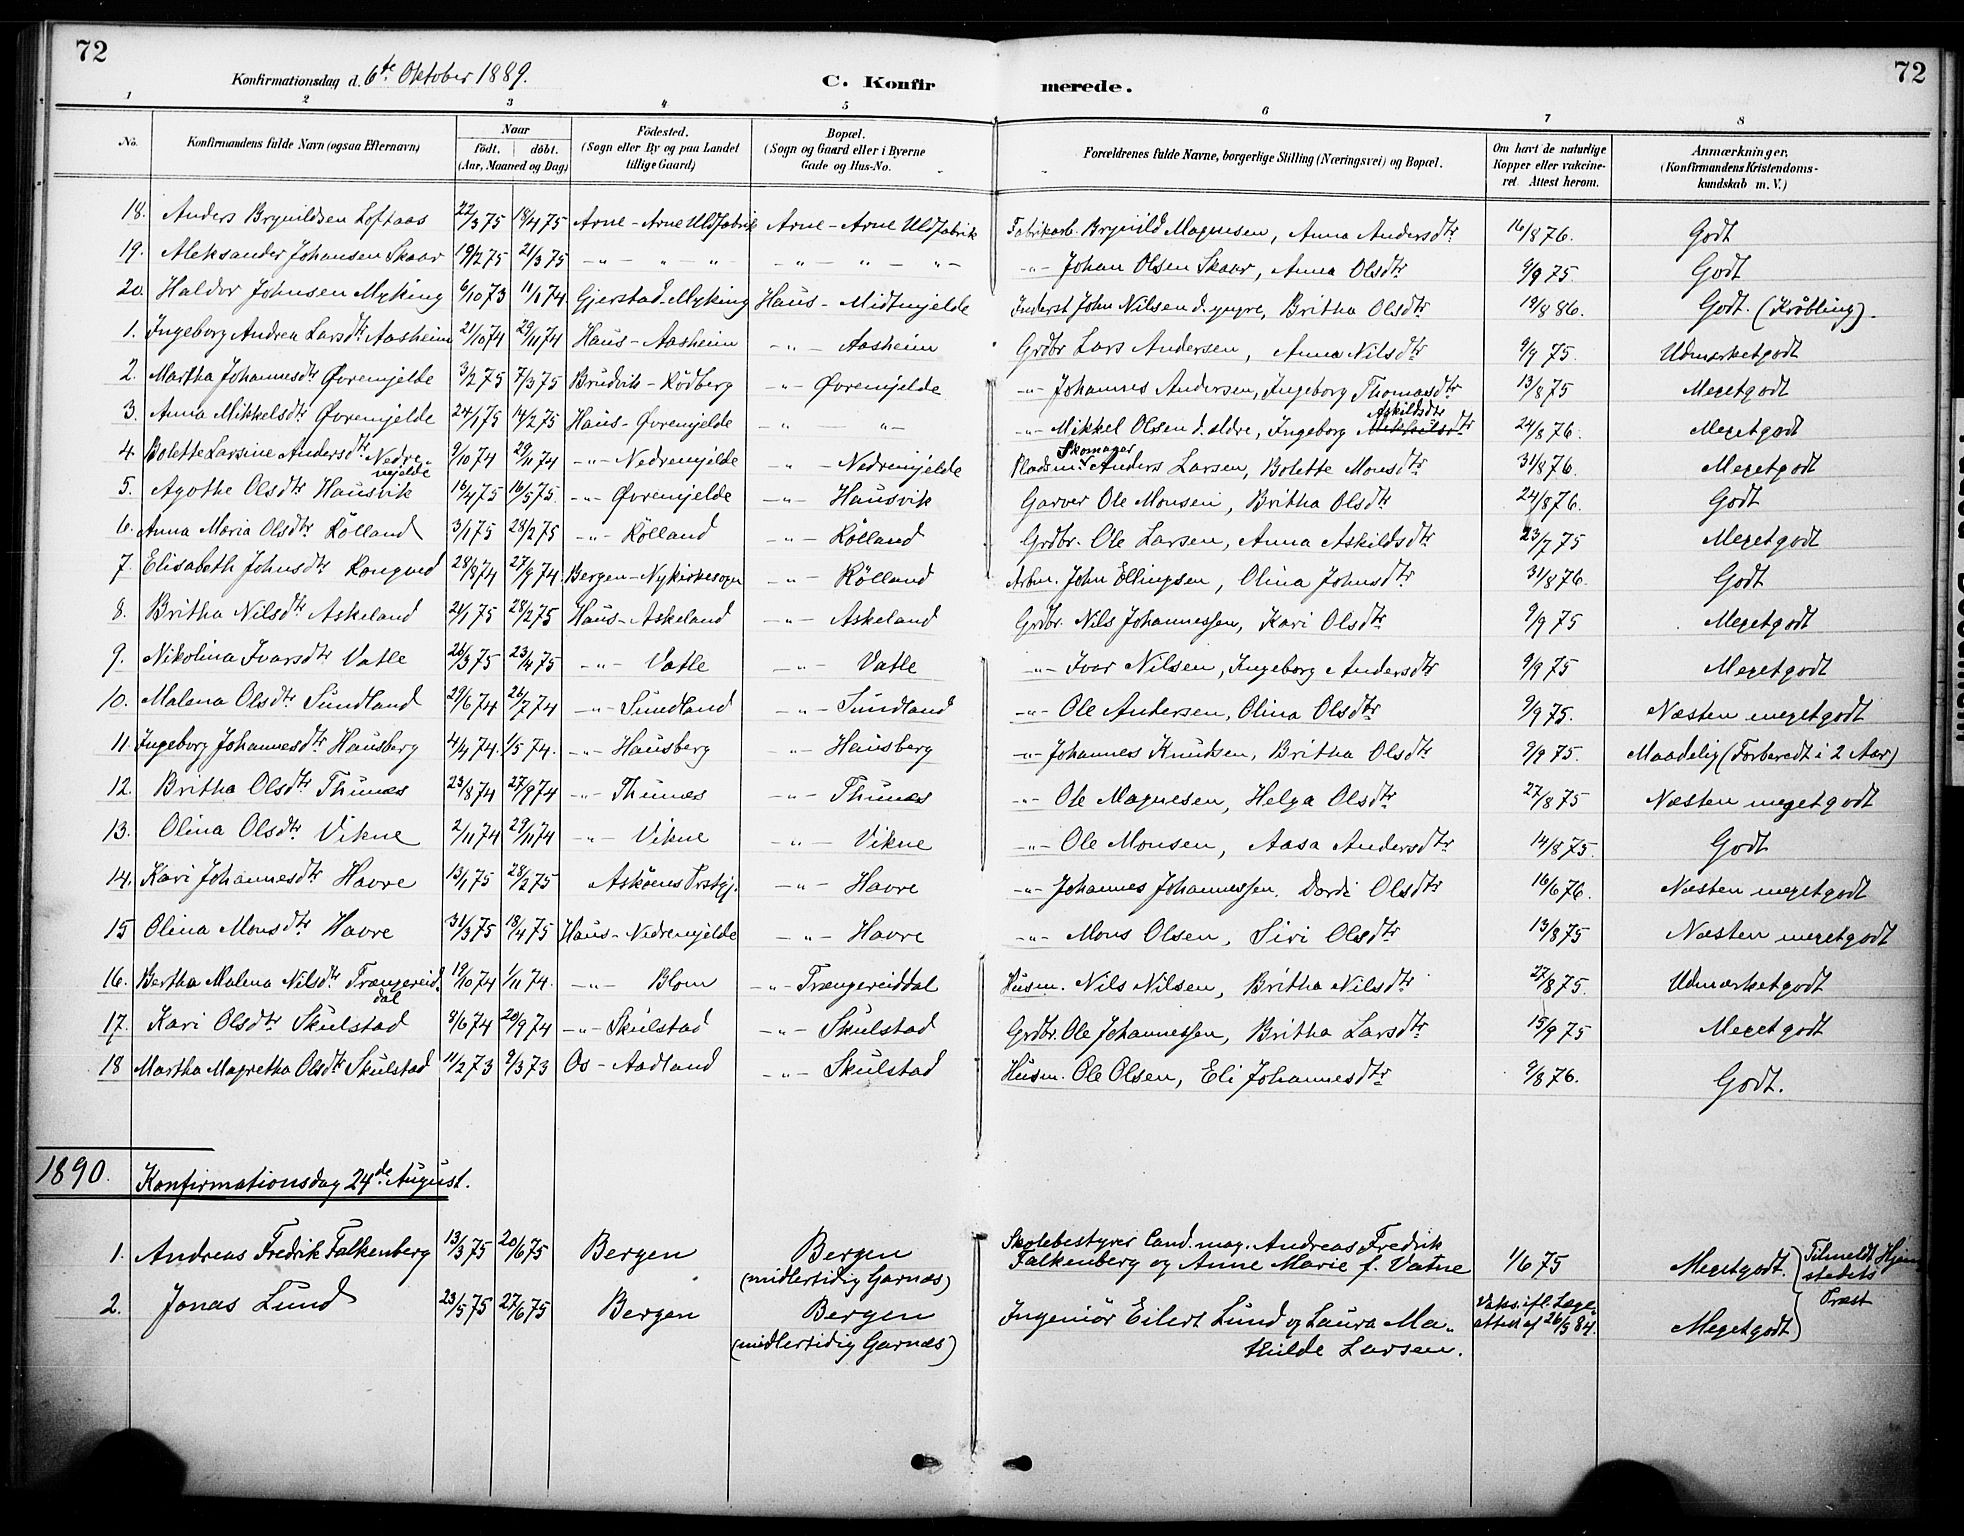 72
Konfirmationsdag d. 6te Oktober 1889.
C. Konfirmerede.
72
1 2 3 4 5 6 7 8
No. | Konfirmandens fulde Navn (ogsaa Efternavn) | Naar født. | døbt. (Aar, Maaned og Dag) | Födested. (Sogn eller By og paa Landet tillige Gaard) | Bopæl. (Sogn og Gaard eller i Byerne Gade og Hus-No. | Forældrenes fulde Navne, borgerlige Stilling (Næringsvei) og Bopæl. | Om havt de naturlige Kopper eller vakcineret. Attest herom. | Anmærkninger. (Konfirmandens Kristendomskundskab m. V.)
18. Anders Brynildsen Loftaas 22/3 75 18/4 75 Arne - Arne Uldfabrik Arne - Arne Uldfabrik Fabrikarb. Brynild Magnesen, Anna Andersdtr 16/8 76. Godt
19. Aleksander Johansen Skaar 19/2 75 21/3 75 -"- " - " -"- " - "- -"- Johan Olsen Skaar, Anna Olsdtr 9/9 75. Godt
20. Haldor Johnsen Myking 6/10 73 11/1 74. Gjerstad-Myking Haus - Midtmjelde Inderst John Nilsen d. yngre, Britha Olsdtr 19/8 86. Godt. (Krøbling).
1. Ingeborg Andrea Larsdtr Aasheim 21/10 74 29/11 74 Haus - Aasheim -"- Aasheim Grdbr Lars Andersen, Anna Nilsdtr 9/9 75. Udmærketgodt
2. Martha Johannesdtr Øvremjelde 3/2 75 7/3 75 Brudvik - Rödberg -"- Øvremjelde -"- Johannes Andersen, Ingeborg Thomasdtr 13/8 75 Megetgodt
3. Anna Mikkelsdtr Øvremjelde 24/1 75 14/2 75 Haus - Øvremjelde -" "- -"- Mikkel Olsen d. ældre, Ingeborg Askildsdtr 24/8 76. Megetgodt
4. Bolette Larsine Andersdtr Nedremjelde 9/10 74 29/11 74 -"- Nedremjelde -"- Nedremjelde Pladsm. Skomager Anders Larsen, Bolette Monsdtr 31/8 76. Megetgodt
5. Agothe Olsdtr Hausvik 16/4 75 16/5 75. -"- Øvremjelde -"- Hausvik Garver Ole Monsen, Britha Olsdtr 24/8 76. Godt
6. Anna Maria Olsdtr Rölland 3/1 75 28/2 75 -"- Rölland -"- Rölland Grdbr. Ole Larsen, Anna Askildsdtr 23/7 75 Megetgodt
7. Elisabeth Johnsdtr Rongved 28/8 74 27/9 74. Bergen - Nykirkesogn -"- Rölland Arbm. John Ellingsen, Olina Johnsdtr 31/8 76. Godt
8. Britha Nilsdtr Askeland 21/1 75 28/2 75 Haus - Askeland -"- Askeland Grdbr. Nils Johannessen, Kari Olsdtr 9/9 75 Megetgodt
9. Nikolina Ivarsdtr Vatle 26/3 75 23/4 75 -"- Vatle -"- Vatle -"- Ivar Nilsen, Ingeborg Andersdtr 9/9 75 Megetgodt
10. Malena Olsdtr Sundland 29/6 74 26/7 74 -"- Sundland -"- Sundland -"- Ole Andersen, Olina Olsdtr 9/9 75. Næsten megetgodt
11. Ingeborg Johannesdtr Hausberg 4/4 74. 1/5 74. -"- Hausberg -"- Hausberg -"- Johannes Knudsen, Britha Olsdtr 9/9 75. Maadelig (Forberedt i 2 Aar)
12. Britha Olsdtr Thunæs 23/8 74 27/9 74 -"- Thunæs -"- Thunæs -"- Ole Magnesen, Helga Olsdtr 27/8 75 Næsten megetgodt
13. Olina Olsdtr Vikne 2/11 74 29/11 74 -"- Vikne -"- Vikne -"- Ole Monsen, Aasa Andersdtr 14/8 75. Godt
14. Kari Johannesdtr Havre 13/1 75 28/2 75 Askøens Prstgj. -"- Havre -"- Johannes Johannessen. Dordi Olsdtr 16/6 76. Næsten megetgodt
15 Olina Monsdtr Havre 31/3 75 18/4 75 Haus - Nedremjelde -"- Havre -"- Mons Olsen, Siri Olsdtr 13/8 75 Næsten megetgodt
16. Bertha Malena Nilsdtr Trængereiddal 19/10 74 1/11 74. -"- Blom -"- Trængereiddal Husm. Nils Nilsen, Britha Nilsdtr 27/8 75. Udmærketgodt
17. Kari Olsdtr Skulstad 8/6 74 20/9 74 -"- Skulstad -"- Skulstad Grdbr. Ole Johannessen, Britha Larsdtr 15/9 75 Megetgodt
18 Martha Magretha Olsdtr Skulstad 11/2 73 9/3 73 Os - Aadland -"- Skulstad Husm. Ole Olsen, Eli Johannesdtr 9/8 76. Godt.
1890. Konfirmationsdag 24de August.
1. Andreas Fredrik Falkenberg 13/3 75 20/6 75 Bergen Bergen (midlertidig Garnæs) Skolebestyrer Cand. mag. Andreas Fredrik Falkenberg og Anne Marie f. Vatne 1/6 75 Megetgodt. (Tilmeldt Hjemstedets Præst
2. Jonas Lund 23/5 75 27/6 75 Bergen Bergen (midlertidig Garnæs) Ingeniør Eilert Lund og Laura Mathilde Larsen. Vaks. ifl. Lægeattest af 26/5 84. Megetgodt)